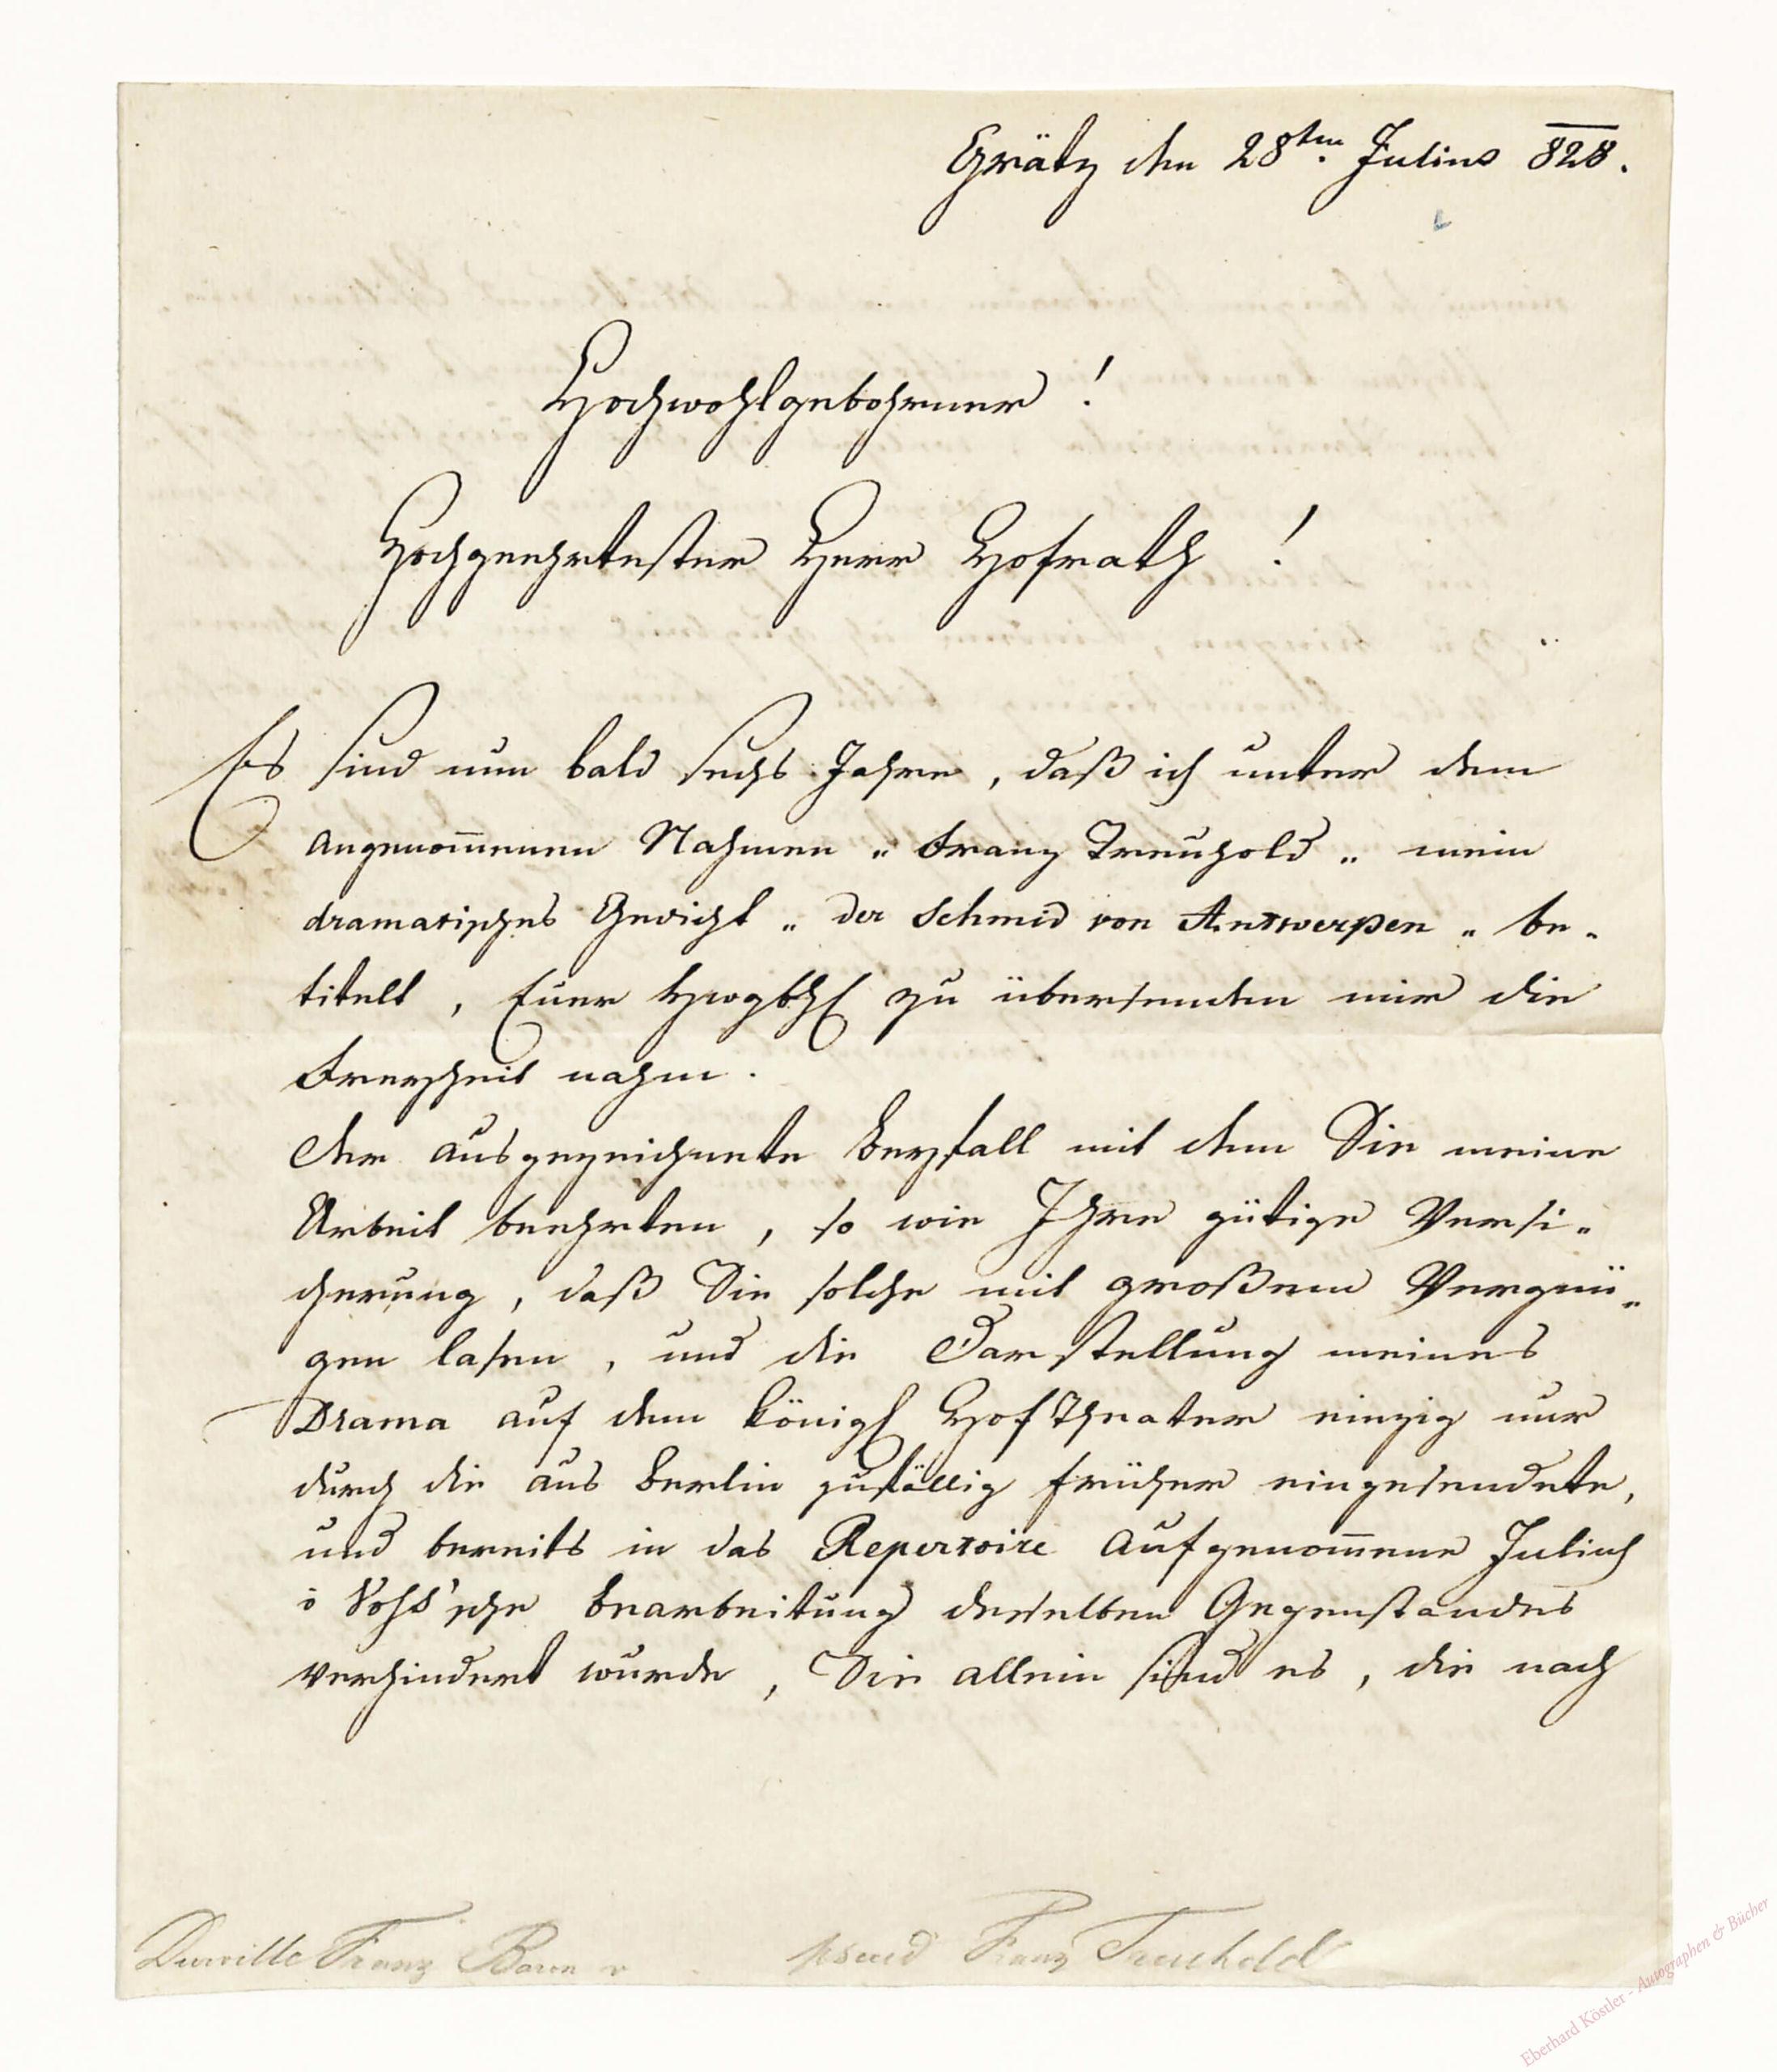 Grätz den 28ten. Julius 828.
Hochwohlgebohrner !
Hochgeehrtester Herr Hofrath !
Es sind nun bald sechs Jahre , daß ich unter dem
angenom̅enen Nahmen „ Franz Treuhold „ mein
dramatisches Gedicht „ der Schmid von Antwerpen „ be-
titelt , Euer zu übersenden mir die
Freyheit nahm .
Der ausgezeichnete Beyfall mit dem Sie meine
Arbeit beehrten , so wie Ihre gütige Versi-
cherung , daß Sie solche mit großem Vergnü-
gen lasen , und die Darstellung meines
Drama auf dem königl Hof Theater einzig nur
durch die aus Berlin zufällig früher eingesendete,
und bereits in das Repertoire aufgenom̅ene Julius
v Voss'sche Bearbeitung desselben Gegenstandes
verhindert wurde , Sie allein sind es , die nach
Franz Baron v
pseud Franz Treuhold
Eberhard Köstler - Autographen & Bücher